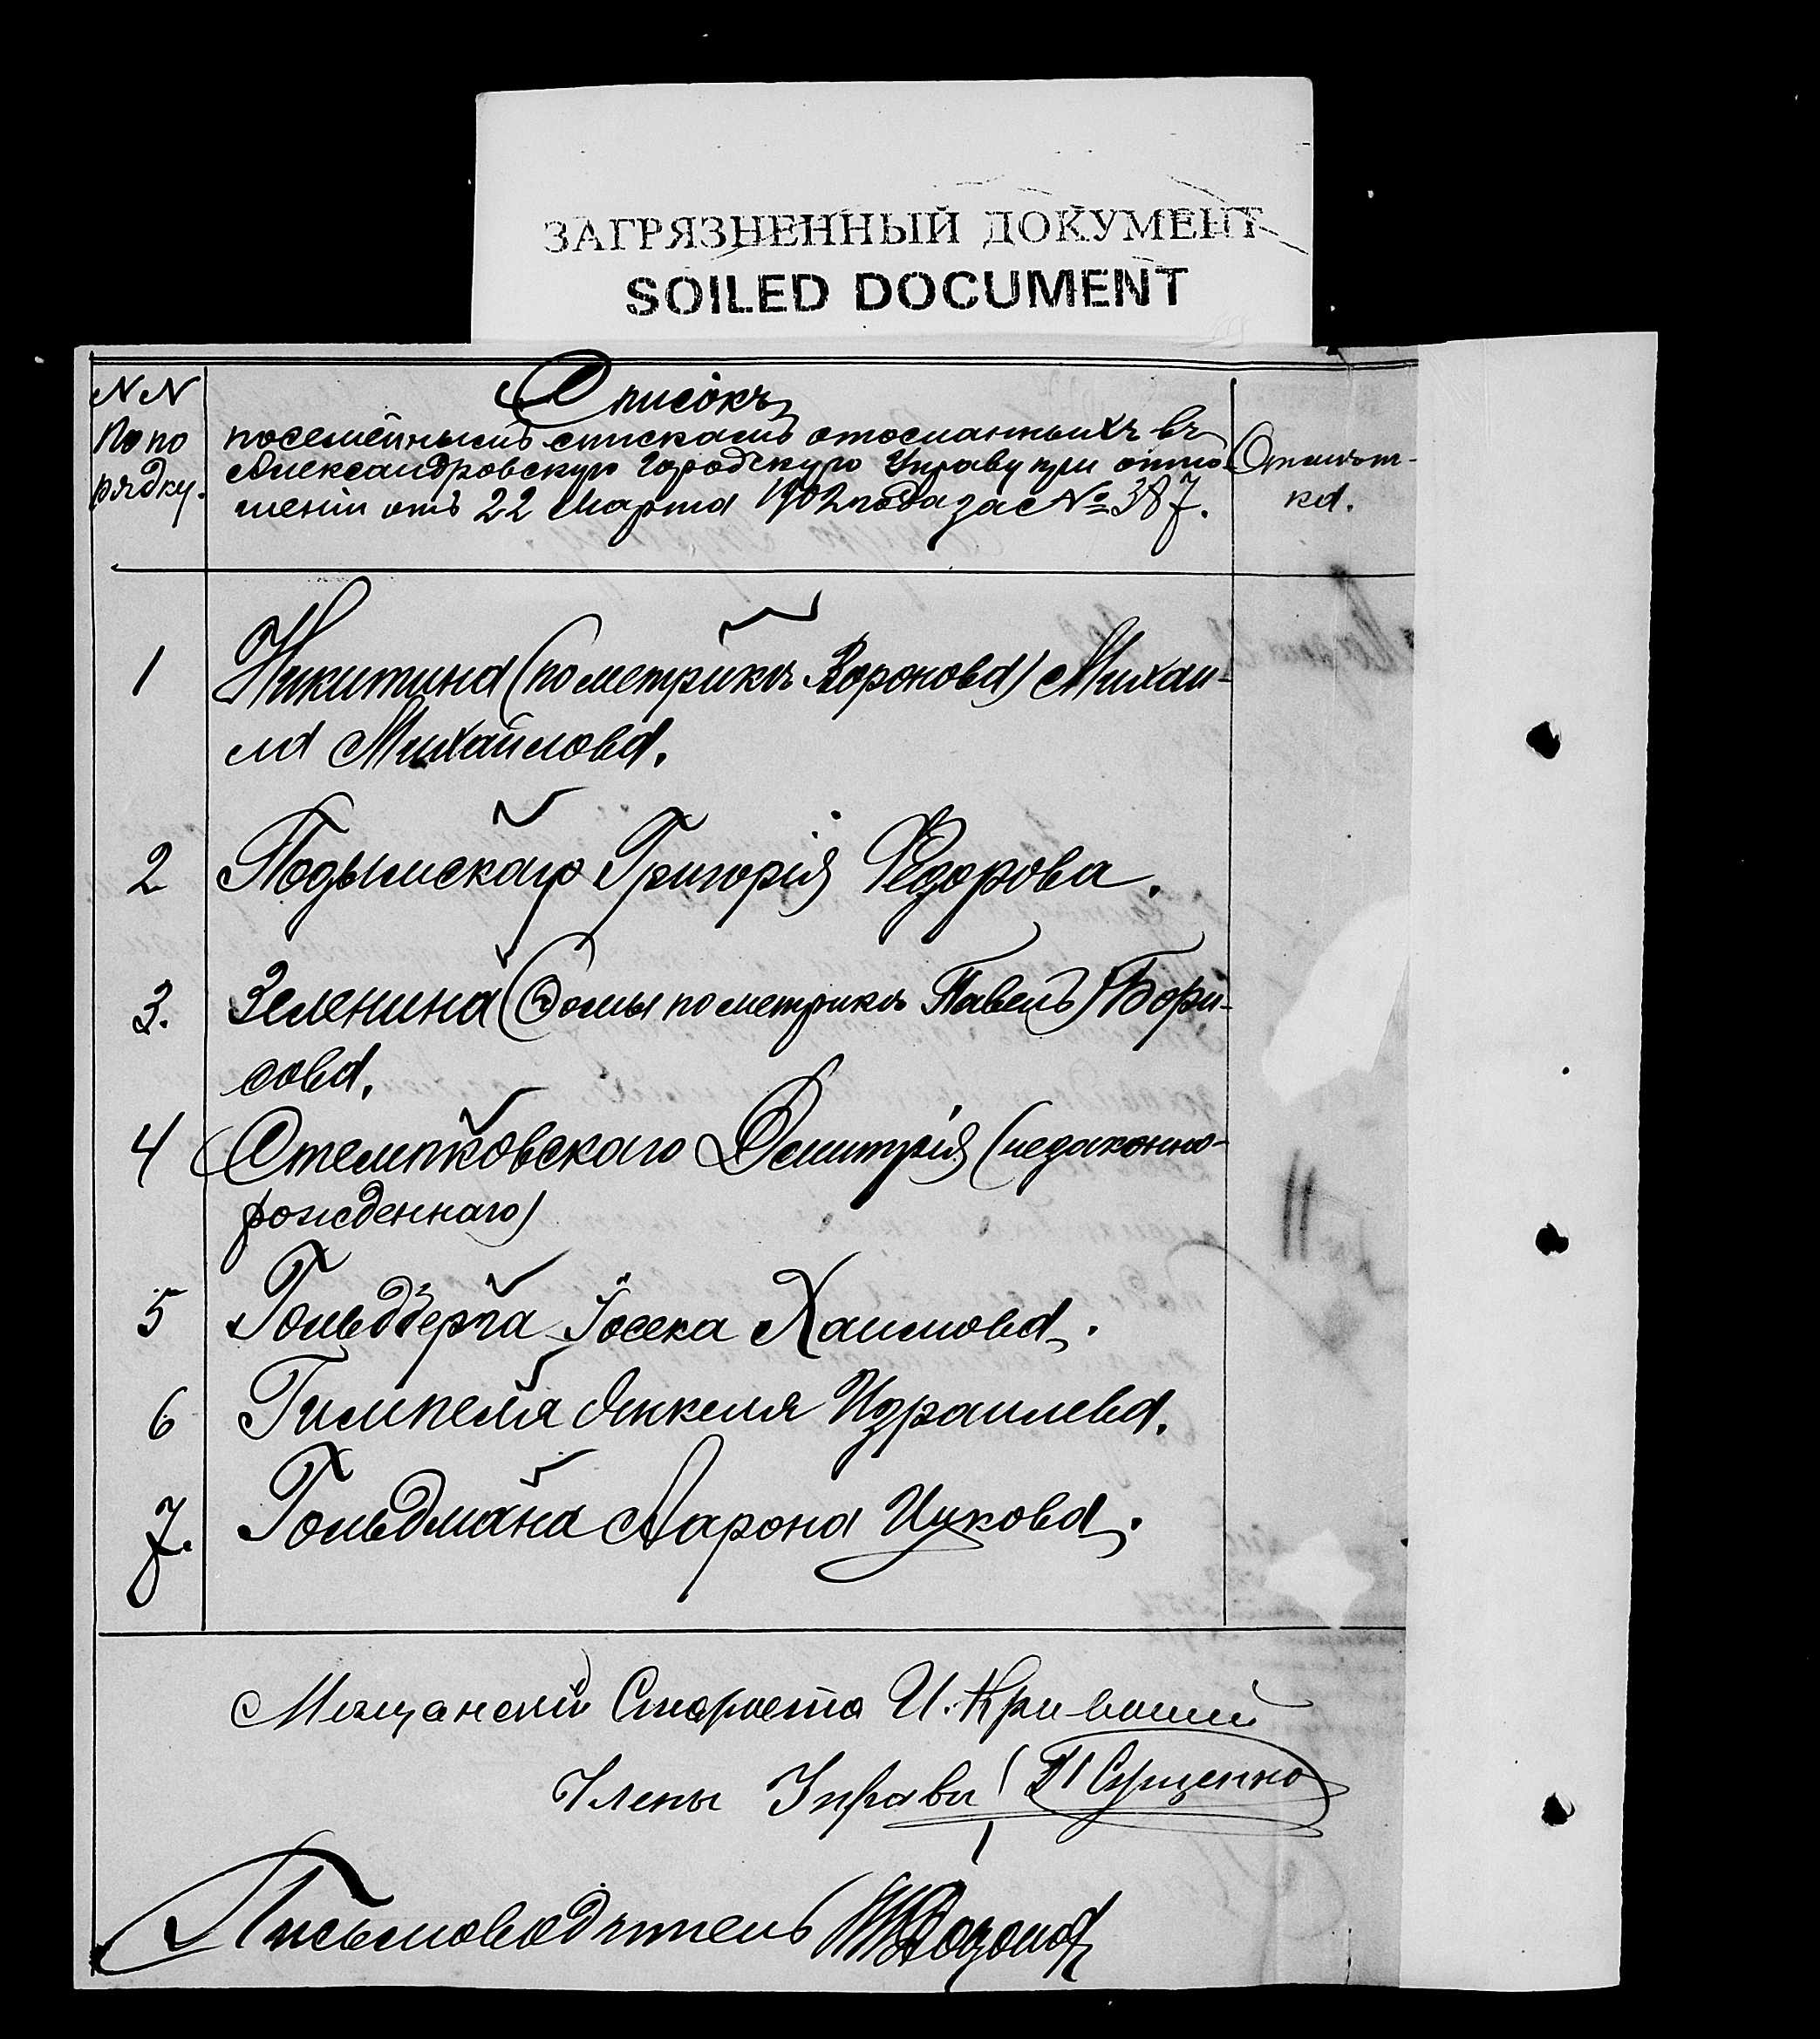 ЗАГРЯЗНЕННЫЙ ДОКУМЕНТ
SOILED DOCUMENT
NN
По по
рядку.
Списокъ
посемейнымъ спискамъ отосланныхъ въ
Александровскую Городскую Управу при отно-
шеніи отъ 22 Марта 1902 года за № 387.
Отмѣт-
ка.
1
Никитина (по метрикѣ Воронова) Михаи-
ла Михайлова.
2
Подымскаго Григорія Федорова.
3.
Зеленина (Ѳомы по метрикѣ Павелъ) Бори-
сова.
4
Стемпковскаго Дмитрія (незаконно-
рожденнаго)
5
Гольдберга Іосека Хаимова.
6
Гимпеля Янкеля Израилева.
7.
Гольдмана Аарона Ицкова.
Мѣщанскій Староста И. Кривошей
Члены Управы П Сущенко
Письмоводитель